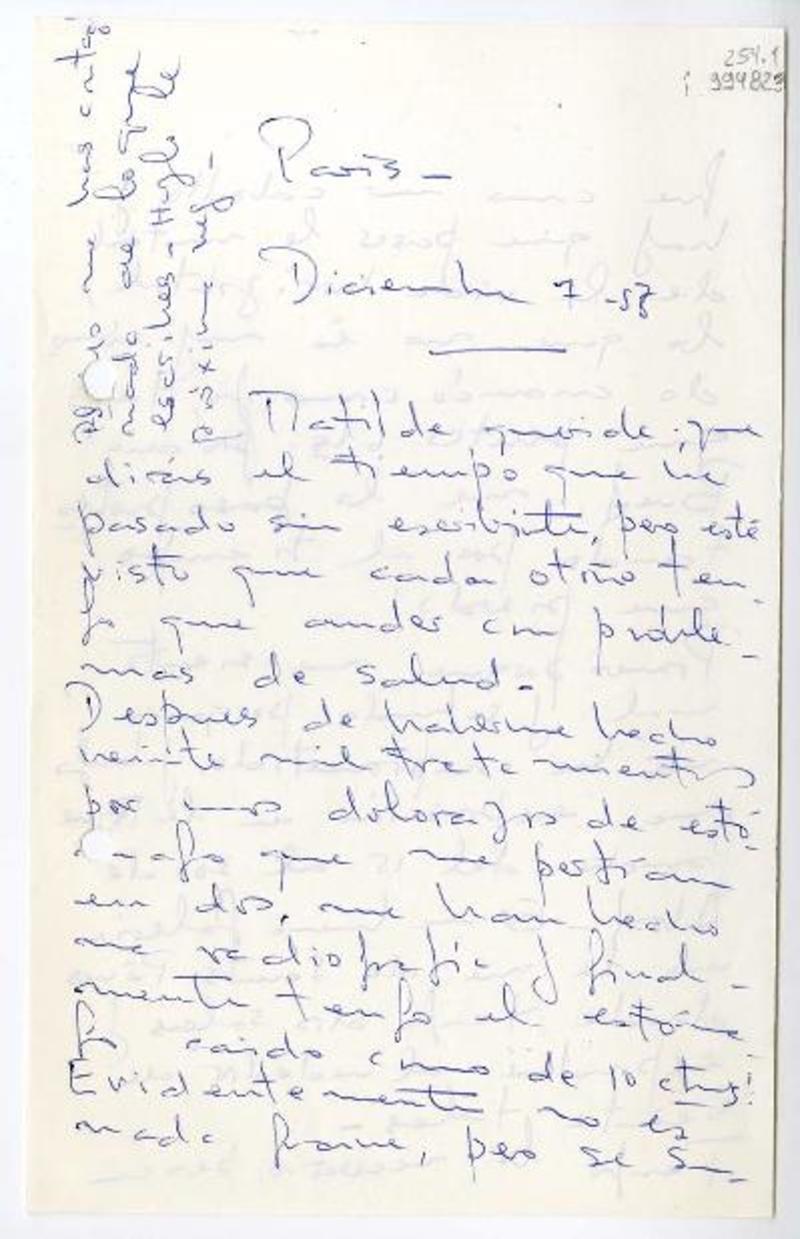 254.1
994823
París -
Diciembre 7 - 53
Matilde querida; que
dirás el tiempo que he
pasado sin escribirte, pero está
visto que cada otoño ten-
go que andar con proble-
mas de salud.
Despues de haberme hecho
veinte mil tratamientos
por unos dolorazos de estó-
mago que me partían
en dos, me han hecho
una radiografía y final-
mente tengo el estóma
go caído como de 10 ctms!
Evidentemente no es
nada grave, pero se su-
no me has contado
nada de lo que
escribes. Hazlo la
próxima vez.